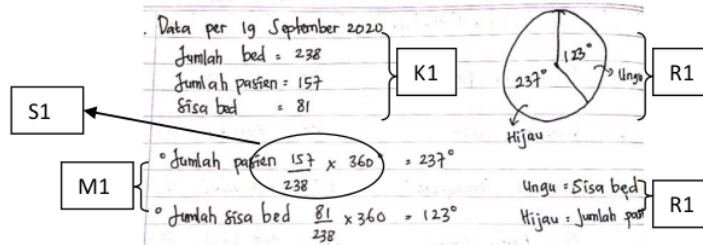 . Data per 19 September 2020
Jumlah bed = 238
Jumlah pasien = 157
Sisa bed = 81
K1
123°
237°
Ungu
Hijau
R1
S1
M1
° Jumlah pasien 157/238 x 360° = 237°
° Jumlah sisa bed 81/238 x 360 = 123°
Ungu = Sisa bed
Hijau = Jumlah
R1